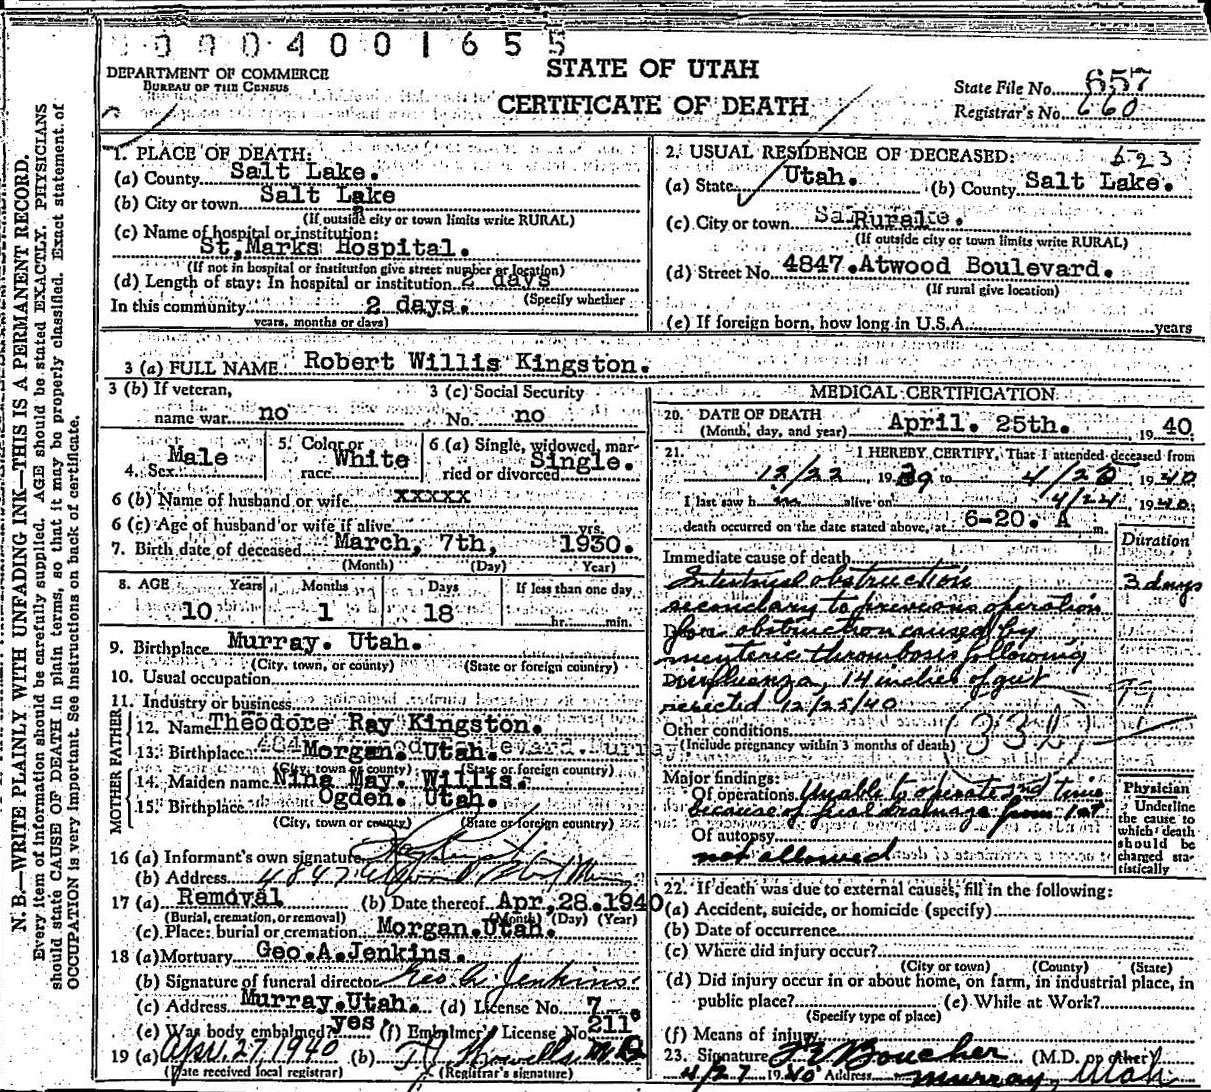 0004001655
DEPARTMENT OF COMMERCE
BUREAU OF THE CENSUS
STATE OF UTAH
CERTIFICATE OF DEATH
State File No. 657
Registrar's No. 660
N. B.—WRITE PLAINLY WITH UNFADING INK—THIS IS A PERMANENT RECORD.
Every item of information should be carefully supplied. AGE should be stated EXACTLY. PHYSICIANS
should state CAUSE OF DEATH in plain terms, so that it may be properly classified. Exact statement of
OCCUPATION is very important. See instructions on back of certificate.
1. PLACE OF DEATH:
(a) County Salt Lake.
(b) City or town Salt Lake
(If outside city or town limits write RURAL)
(c) Name of hospital or institution:
St, Marks Hospital.
(If not in hospital or institution give street number or location)
(d) Length of stay: In hospital or institution 2 days
(Specify whether
In this community 2 days.
years, months or days)
2. USUAL RESIDENCE OF DECEASED: 623
(a) State Utah. (b) County Salt Lake.
(c) City or town Rural
(If outside city or town limits write RURAL)
(d) Street No. 4847.Atwood Boulevard.
(If rural give location)
(e) If foreign born, how long in U.S.A. years
3 (a) FULL NAME Robert Willis Kingston.
3 (b) If veteran, name war no
3 (c) Social Security No. no
4. Sex Male
5. Color or race White
6 (a) Single, widowed, married or divorced Single.
6 (b) Name of husband or wife xxxxx
6 (c) Age of husband or wife if alive yrs.
7. Birth date of deceased March, 7th, 1930.
(Month) (Day) (Year)
8. AGE Years Months Days If less than one day
10 1 18 hr. min.
9. Birthplace Murray. Utah.
(City, town, or county) (State or foreign country)
10. Usual occupation
11. Industry or business
FATHER
12. Name Theodore Ray Kingston.
13. Birthplace Morgan. Utah.
(City, town or county) (State or foreign country)
MOTHER
14. Maiden name Nina May. Willis.
15. Birthplace Ogden. Utah.
(City, town or county) (State or foreign country)
16 (a) Informant's own signature
(b) Address 4847 Atwood Blvd
17 (a) Removal (b) Date thereof Apr, 28. 1940
(Burial, cremation, or removal) (Month) (Day) (Year)
(c) Place: burial or cremation Morgan. Utah.
18 (a) Mortuary Geo. A. Jenkins.
(b) Signature of funeral director Geo A. Jenkins.
(c) Address Murray. Utah. (d) License No. 7
(e) Was body embalmed? yes. (f) Embalmer's License No. 211
19 (a) Apr. 27, 1940 (b) M D
(Date received local registrar) (Registrar's signature)
MEDICAL CERTIFICATION
20. DATE OF DEATH
(Month, day, and year) April. 25th. 19 40
21. I HEREBY CERTIFY, That I attended deceased from
12/22, 19 39 to 4/25 19 40
I last saw h im alive on 4/24 1940:
death occurred on the date stated above, at 6-20. A m.
Duration
Immediate cause of death
Intestinal obstruction 3 days
secondary to previous operation
for obstruction caused by
mesenteric thrombosis following
influenza, 14 inches of gut
resected 12/25/40
Other conditions
(Include pregnancy within 3 months of death)
33b
Major findings:
Of operations Unable to operate 2nd time
because of fecal drainage from 1st
Of autopsy
not allowed
Physician
Underline the cause to which death should be charged statistically
22. If death was due to external causes, fill in the following:
(a) Accident, suicide, or homicide (specify)
(b) Date of occurrence
(c) Where did injury occur?
(City or town) (County) (State)
(d) Did injury occur in or about home, on farm, in industrial place, in
public place? (e) While at Work?
(Specify type of place)
(f) Means of injury
23. Signature Boucher (M.D. or other)
4/27 1940 Address Murray, Utah